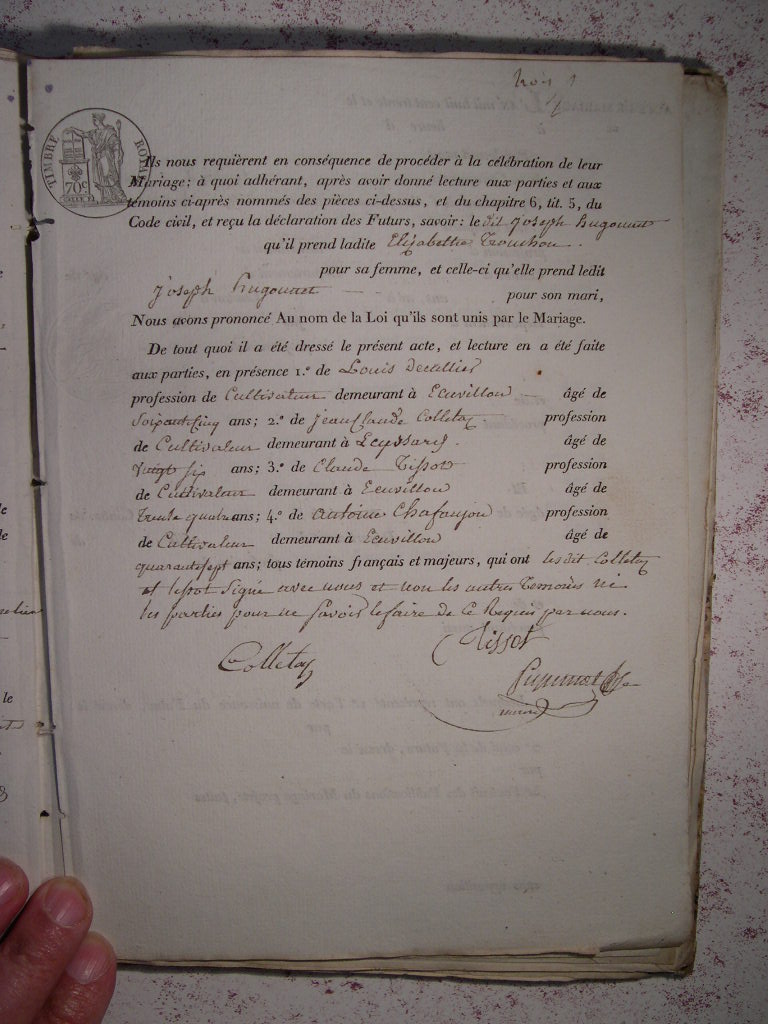 trois
TIMBRE ROYAL
70c
Ils nous requièrent en conséquence de procéder à la célébration de leur
Mariage; à quoi adhérant, après avoir donné lecture aux parties et aux
témoins ci-après nommés des pièces ci-dessus, et du chapitre 6, tit. 5, du
Code civil, et reçu la déclaration des Futurs, savoir: le dit Joseph hugonnet
qu'il prend ladite Elizabeth Trouchon.
pour sa femme, et celle-ci qu'elle prend ledit
Joseph hugonnet pour son mari,
Nous avons prononcé Au nom de la Loi qu'ils sont unis par le Mariage.
De tout quoi il a été dressé le présent acte, et lecture en a été faite
aux parties, en présence 1.º de Louis
profession de Cultivateur demeurant à Ecuvillon âgé de
Soixante Cinq ans; 2.º de Jean Claude Colletaz profession
de Cultivateur demeurant à Leyssard. âgé de
vingt six ans; 3.º de Claude Tissot profession
de Cultivateur demeurant à Ecuvillon âgé de
trente quatre ans; 4.º de antoine Chafanjon profession
de Cultivateur demeurant à Ecuvillon âgé de
quarante sept ans; tous témoins français et majeurs, qui ont les dit Colletaz
et tissot Signé avec nous et non les autres Temoins ni
les parties pour ne Savoir le faire de Ce Requis par nous.
Tissot
Colletaz